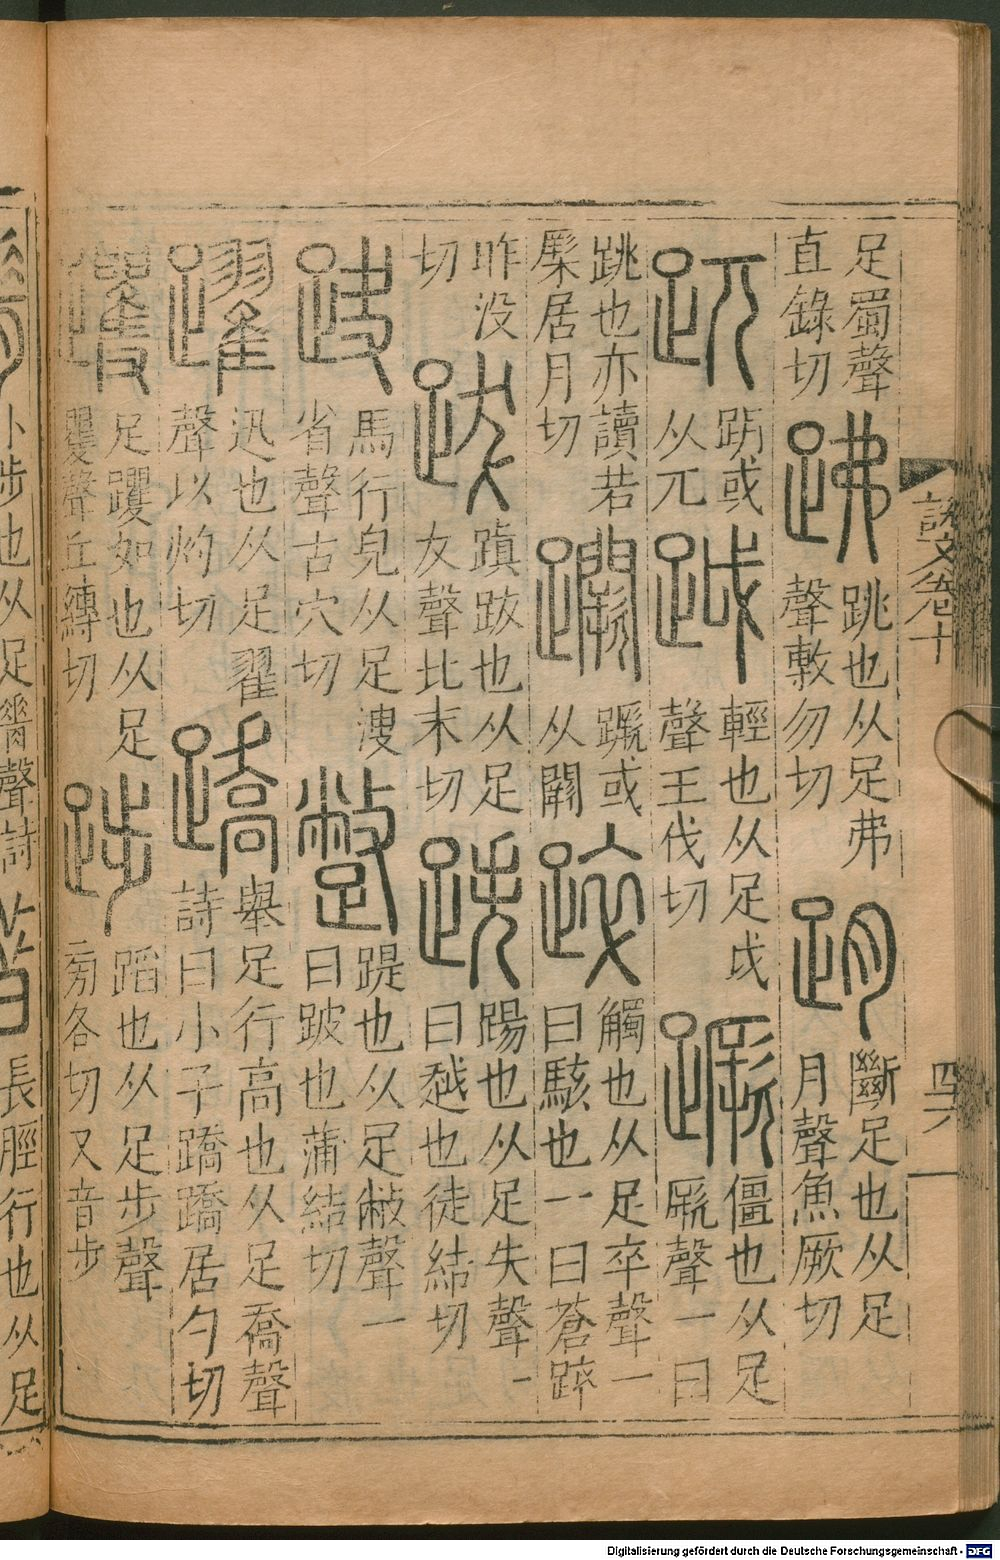 說文卷十
四六
足蜀聲
直錄切
跳也从足弗
聲敷勿切
跀
斷足也从足
月聲魚厥切
跀或
从兀
䟠
輕也从足戉
聲王伐切
蹷
僵也从足
厥聲一曰
跳也亦讀若
橜居月切
蹶或
从闕
踤
觸也从足卒聲一
曰駭也一曰蒼踤
昨没
切
跋
蹎跋也从足
犮聲比末切
跌
踼也从足失聲一
曰越也徒結切
趹
馬行皃从足
省聲古穴切
蹩
踶也从足敝聲一
曰跛也蒲結切
躍
迅也从足翟
聲以灼切
蹻
舉足行高也从足喬聲
詩曰小子蹻蹻居勺切
躩
足躩如也从足
矍聲丘縛切
蹈也从足步聲
旁各切又音步
小步也从足脊聲詩
踖
長脛行也从足
Digitalisierung gefördert durch die Deutsche Forschungsgemeinschaft - DFG